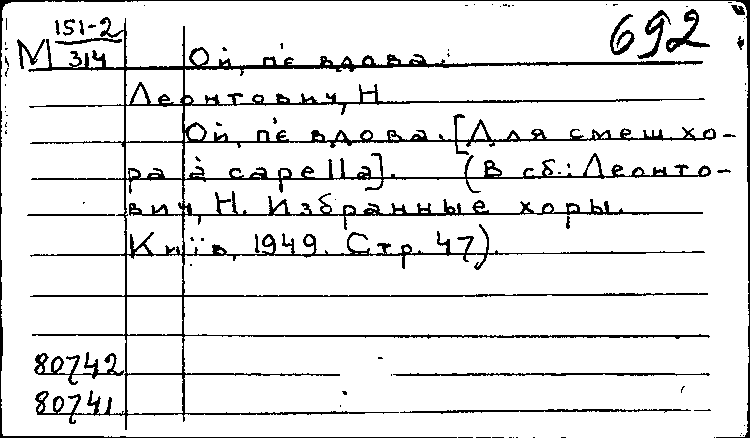 151-2
692
М 314 Ой, п'є вдова.
Леонтович, Н
Ой, п'є вдова. [Для смеш.хо-
ра à capella]. (В сб.: Леонто-
вич, Н. Избранные хоры.
Київ, 1949. Стр. 47).
80742
80741